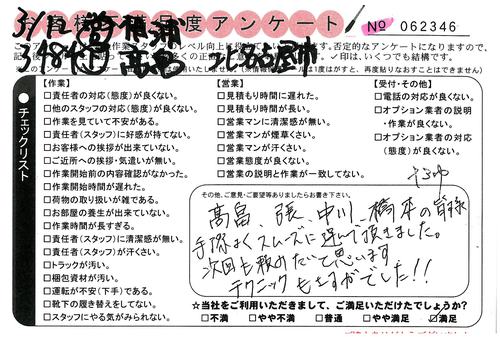 お客様満足度アンケート
No 062346
3/12 積 横浦
3/18 高畠
【作業】
□責任者の対応(態度)が良くない。
□他のスタッフの対応(態度)が良くない。
□作業を見ていて不安がある。
□責任者(スタッフ)に好感が持てない。
□お客様への挨拶が出来ていない。
□ご近所への挨拶・気遣いが無い。
□作業開始前の内容確認がなかった。
□作業開始時間が遅れた。
□荷物の取り扱いが雑である。
□お部屋の養生が出来ていない。
□作業時間が長すぎる。
□責任者(スタッフ)に清潔感が無い。
□責任者(スタッフ)が汗くさい。
□トラックが汚い。
□梱包資材が汚い。
□運転が不安(下手)である。
□靴下の履き替えをしてない。
□スタッフにやる気がみられない。
【営業】
□見積もり時間に遅れた。
□見積もり時間が長い。
□営業マンに清潔感が無い。
□営業マンが煙草くさい。
□営業マンが汗くさい。
□営業態度が良くない。
□営業の説明と作業が一致してない。
【受付・その他】
□電話の対応が良くない。
□オプション業者の説明
・作業が良くない。
□オプション業者の対応
(態度)が良くない。
●チェックリスト
その他、ご意見・ご要望等ありましたらお書き下さい。
高畠、張、中川、橋本の皆様
手際よくスムーズに運んで頂きました。
次回も頼みたいと思います
テクニックもさすがでした!!
☆当社をご利用いただきまして、ご満足いただけたでしょうか?
□不満 □やや不満 □普通 □やや満足 ☑満足